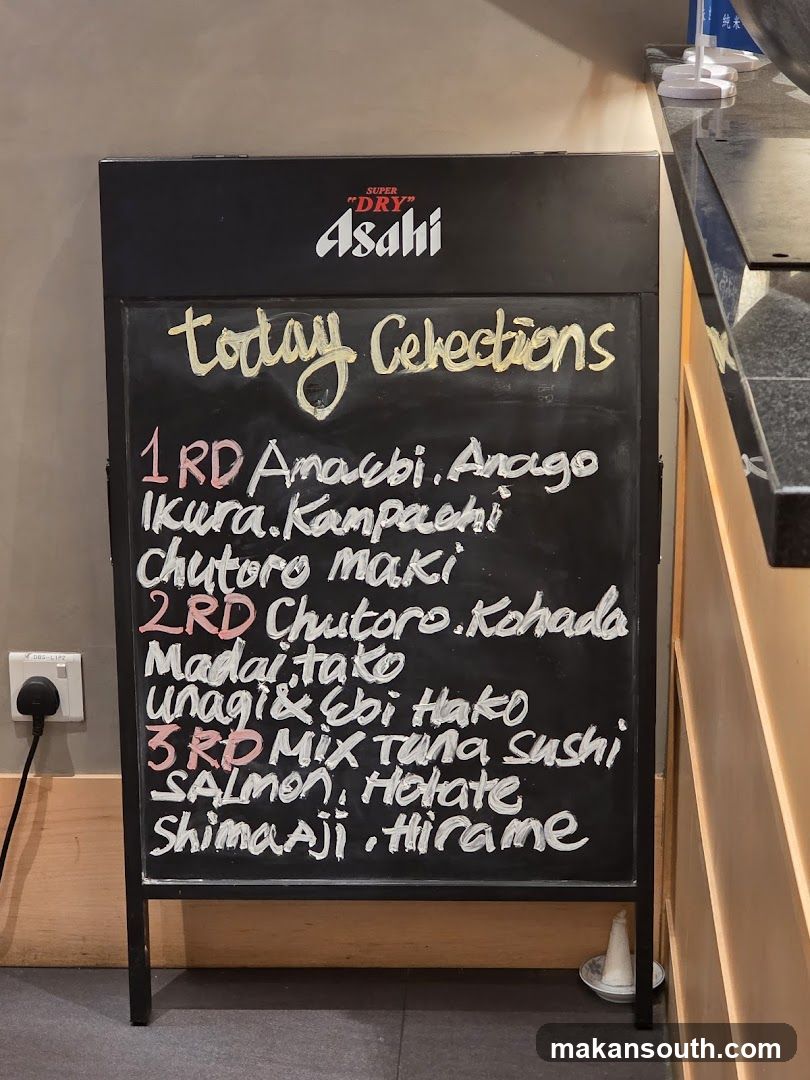 純米
SUPER
"DRY"
Asahi
Today Celections
1RD Amaebi. Anago
Ikura. Kampachi
Chutoro Maki
2RD Chutoro. Kohada
Madai, tako
Unagi & Ebi Hako
3RD Mix Tuna Sushi
SALMON, Hotate
Shima Aji . Hirame
DBS-L1P2
makansouth.com